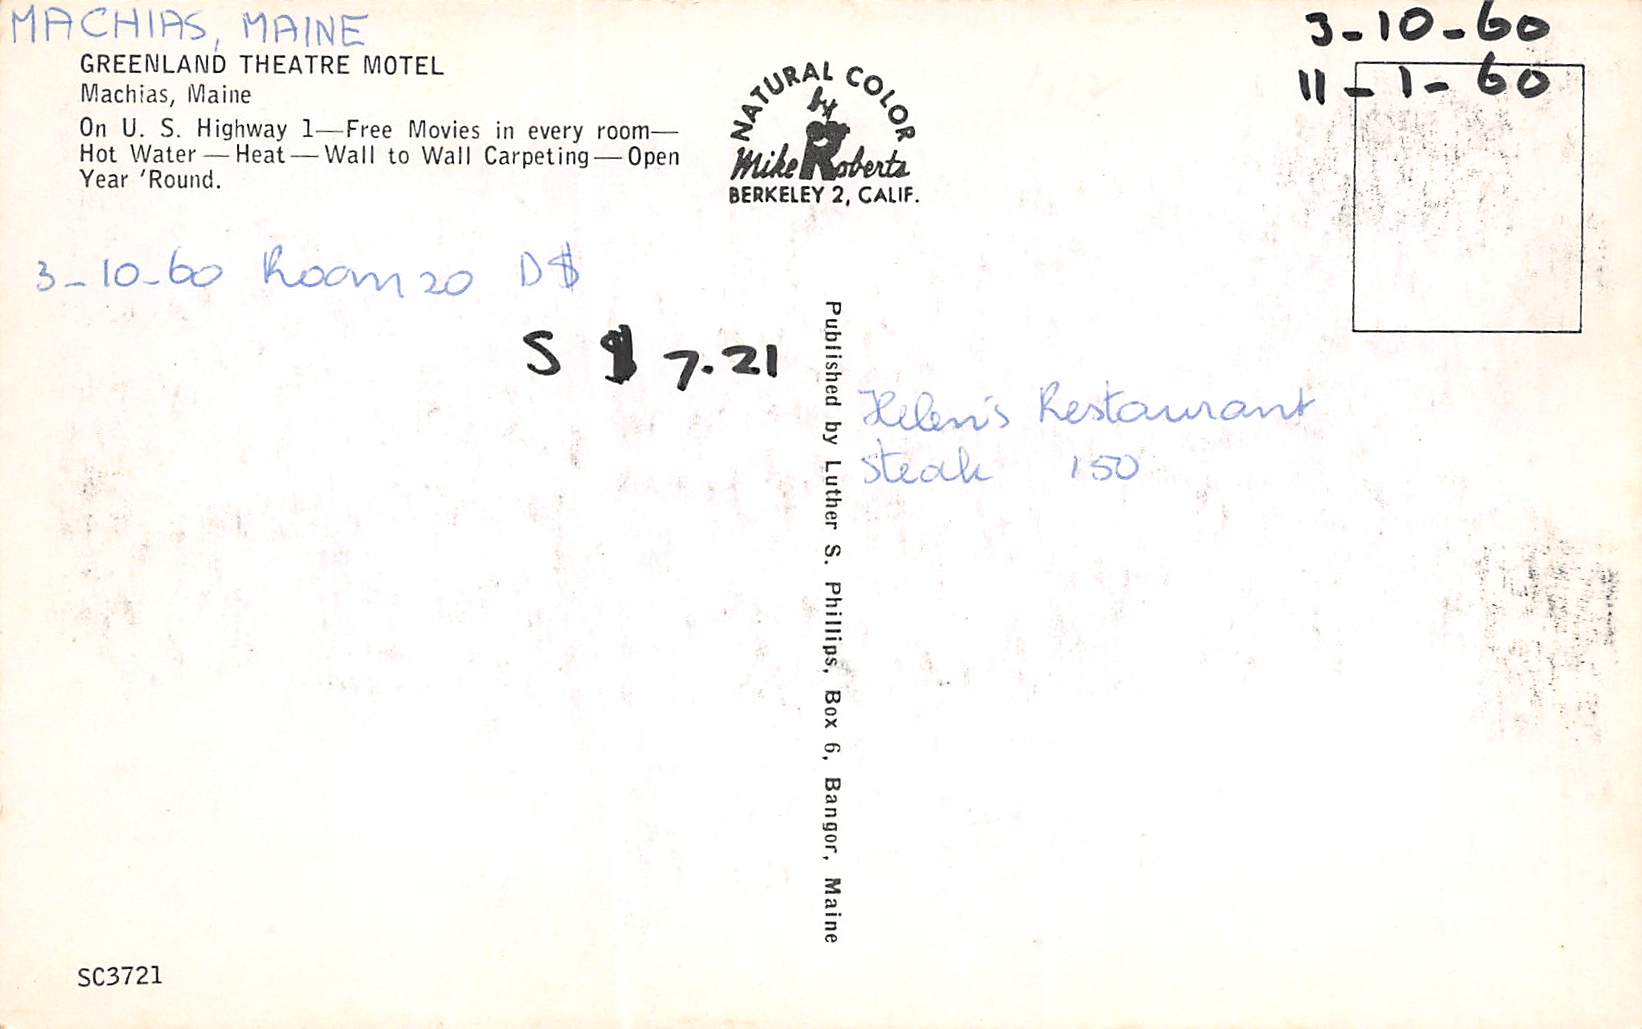 MACHIAS, MAINE
GREENLAND THEATRE MOTEL
Machias, Maine
On U. S. Highway 1—Free Movies in every room—
Hot Water — Heat — Wall to Wall Carpeting — Open
Year 'Round.
NATURAL COLOR
by
Mike Roberts
BERKELEY 2, CALIF.
3-10-60
11-1-60
3-10-60 Room 20 D$
S $ 7.21
Published by Luther S. Phillips, Box 6, Bangor, Maine
Helen's Restaurant
Steak 150
SC3721